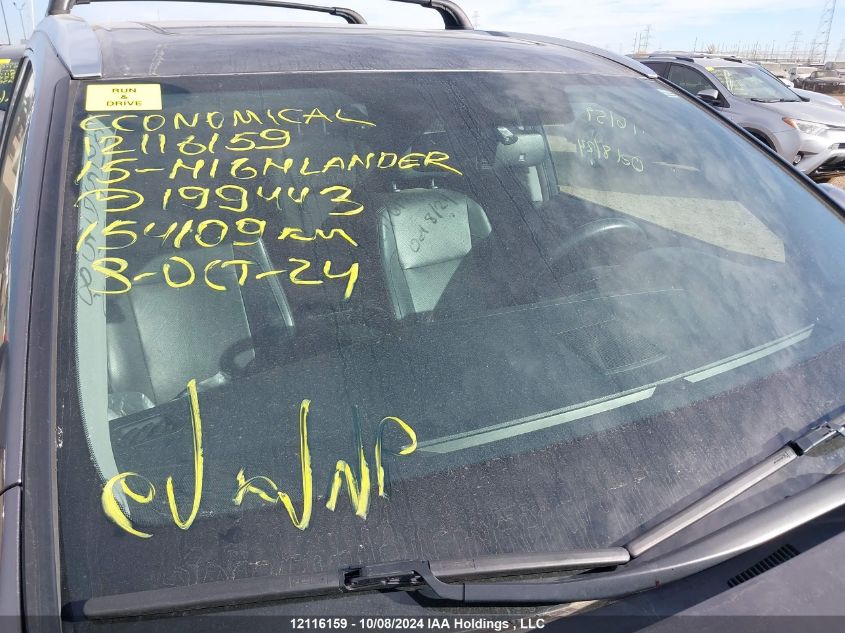 RUN
&
DRIVE
ECONOMICAL
12116159
15-HIGHLANDER
D199443
154109 KM
8-OCT-24
12116159 - 10/08/2024 IAA Holdings, LLC